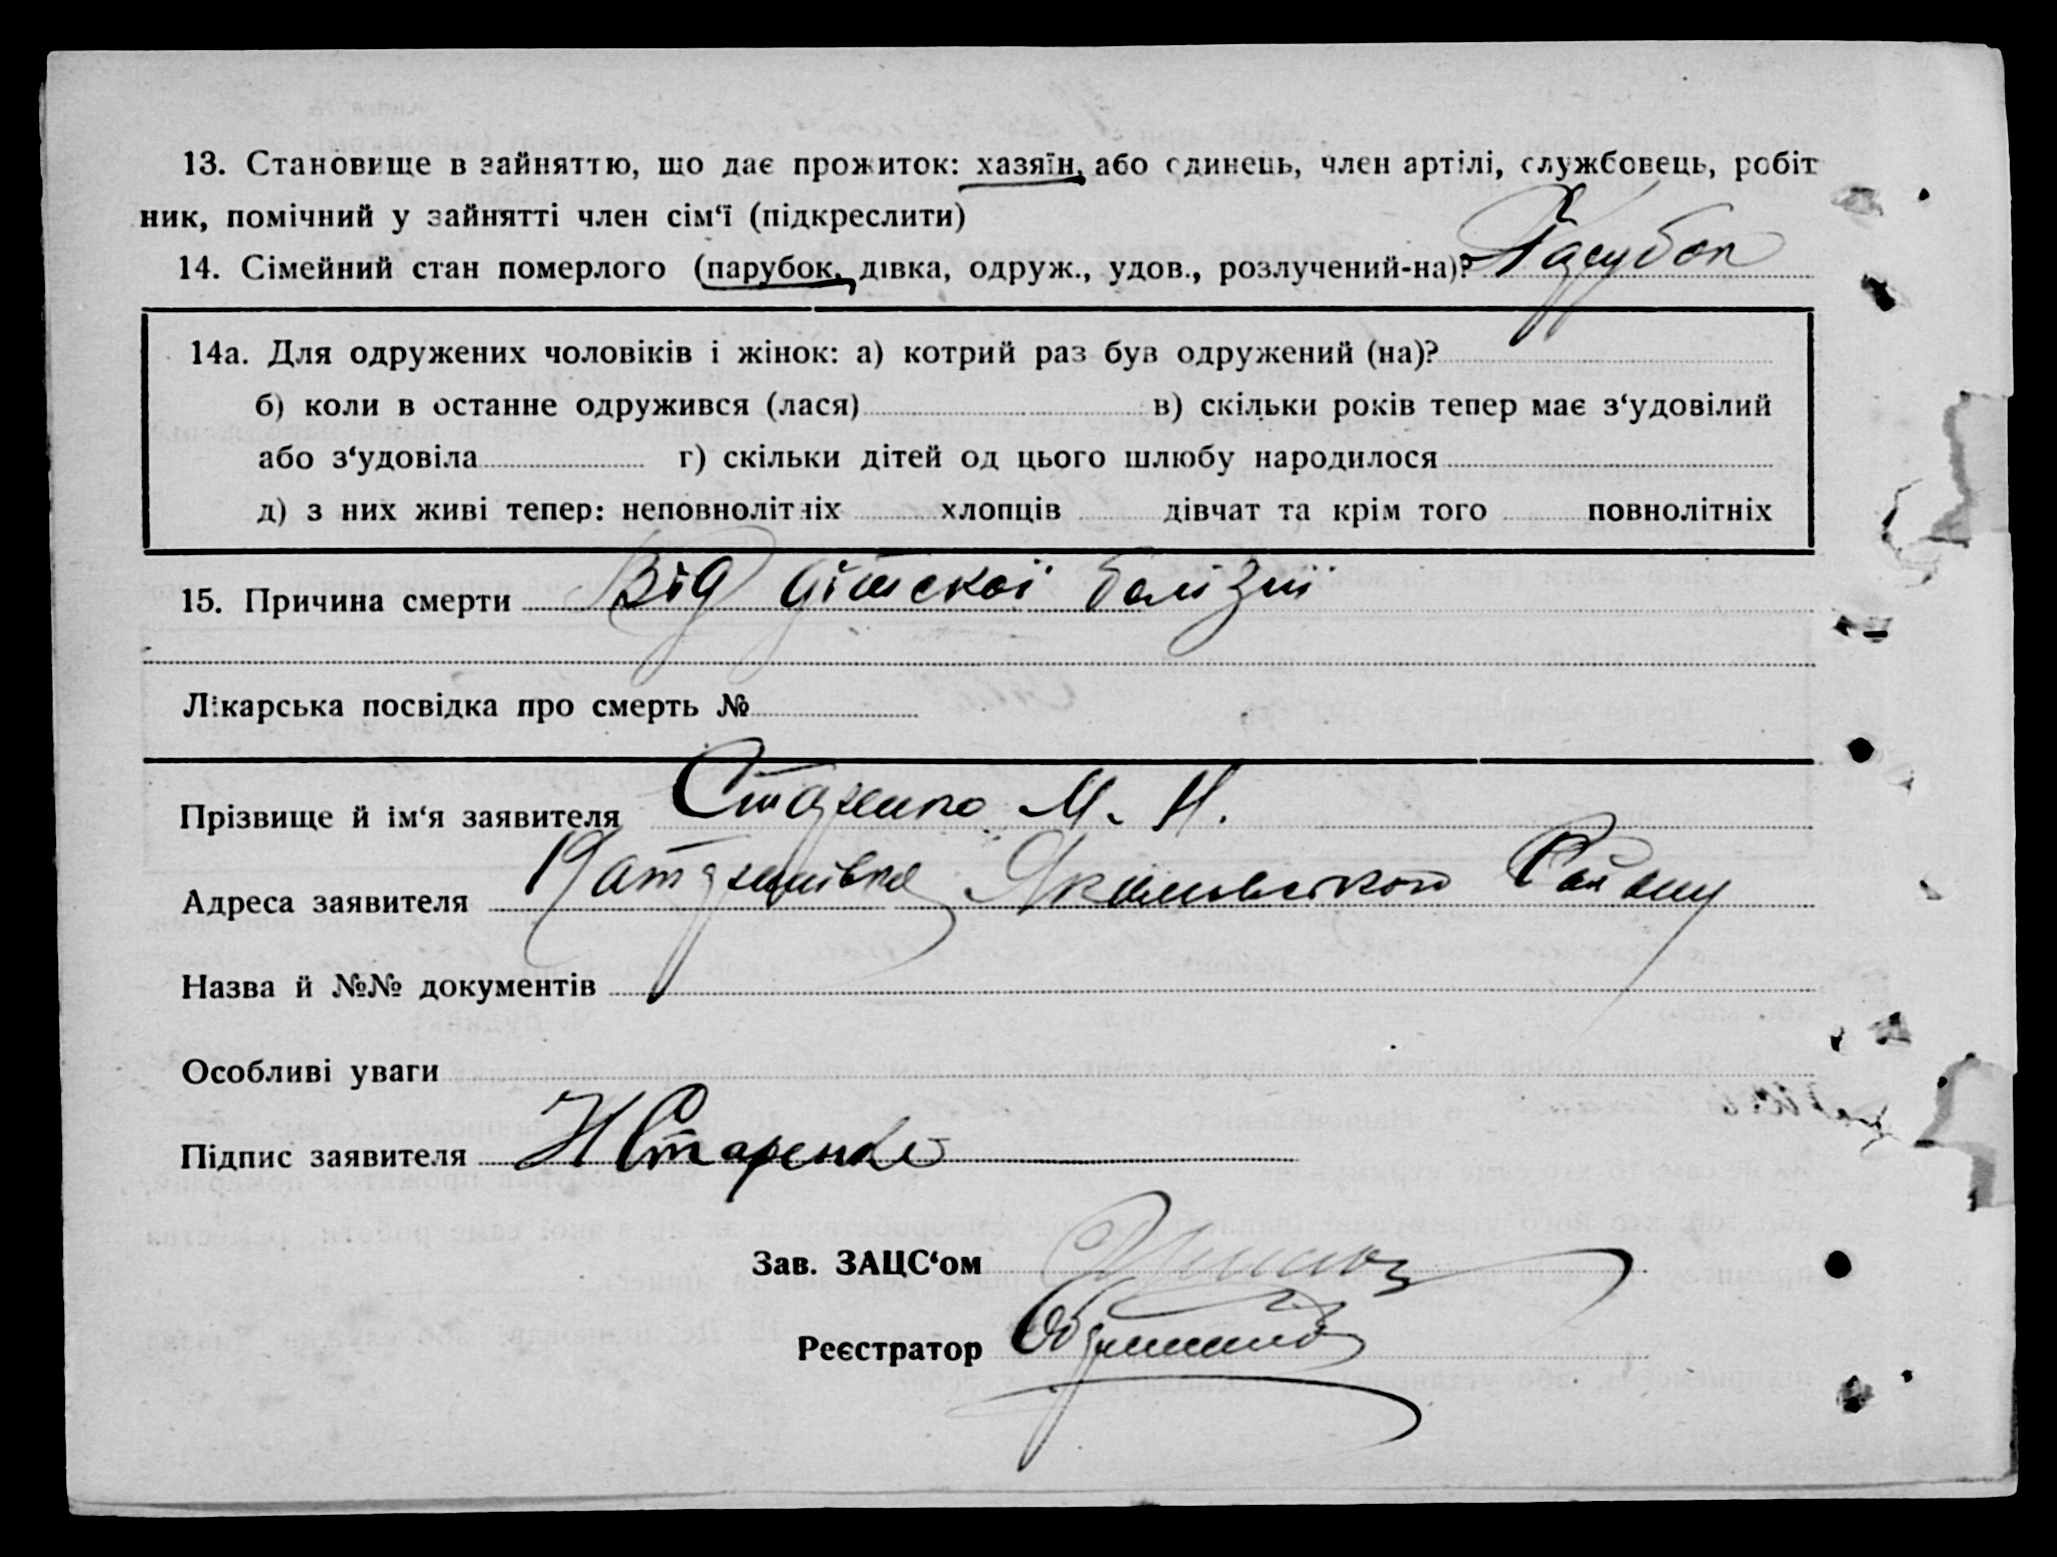 13. Становище в зайняттю, що дає прожиток: хазяїн, або єдинець, член артілі, службовець, робіт
ник, помічний у зайнятті член сім‘ї (підкреслити)
14. Сімейний стан померлого (парубок, дівка, одруж., удов., розлучений-на)? Парубок
14а. Для одружених чоловіків і жінок: а) котрий раз був одружений (на)?
б) коли в останне одружився (лася) в) скільки років тепер має з‘удовілий
або з‘удовіла г) скільки дітей од цього шлюбу народилося
д) з них живі тепер: неповнолітніх хлопців дівчат та крім того повнолітніх
15. Причина смерти Від дітскої болізні
Лікарська посвідка про смерть №
Прізвище й ім‘я заявителя Старенко М. Н.
Адреса заявителя Району
Назва й №№ документів
Особливі уваги
Підпис заявителя Н Старенко
Зав. ЗАЦС‘ом
Реєстратор